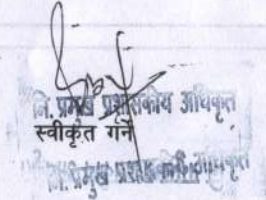 नि. प्रमुख प्रशासकीय अधिकृत
स्वीकृत गर्ने
नि. प्रमुख प्रशासकीय अधिकृत